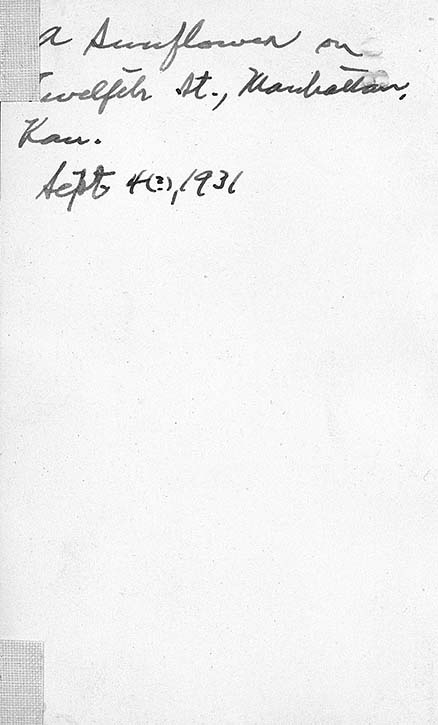 A Sunflower on
Twelfth St., Manhattan,
Kan.
Sept 4(?), 1931